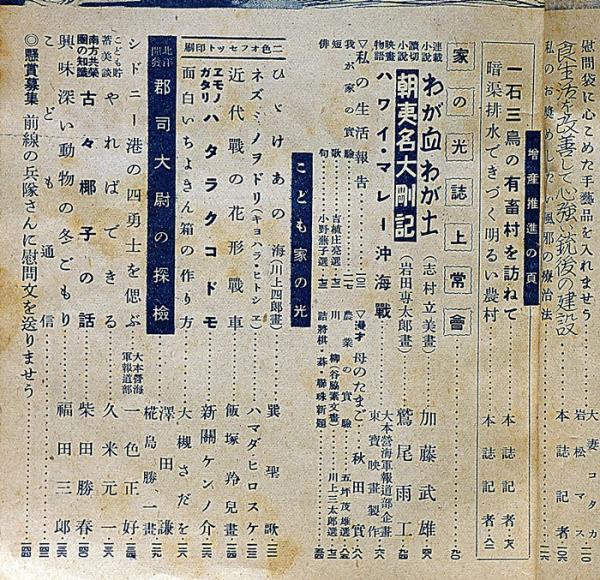 慰問袋に心こめた手藝品を入れませう
大妻コタカ
食生活を改善して心強い銃後の建設
岩松マス
私のお奬めしたい風邪の療治法
増産推進の頁
一石三鳥の有畜村を訪ねて
本誌記者
暗渠排水できづく明るい農村
本誌記者
家の光誌上常會
連載小説 わが血わが土（志村立美畫）
加藤武雄
讀切小説 朝夷名大剛記（岩田専太郎畫）
鷲尾雨工
映畫物語 ハワイ・マレー沖海戰
大本營海軍報道部企畫
東寶映畫製作
▽私の生活報告
▽漫才 母のたまご
秋田實
我が家の實驗
農業の實驗
五坪茂雄選
短歌 吉植庄亮選
川柳（谷脇素文畫）
川上三太郎選
俳句 小野蕪子選
詰將棋・碁・聯珠新題
こども家の光
ひゞけあの海（川上四郎畫）
巽聖歌
ネズミノヲドリ（キヨハラ・ヒトシヱ）
ハマダヒロスケ
二色オフセット印刷
近代戰の花形戰車
飯塚羚兒畫
ヱモノガタリ ハタラクコドモ
新關ケンノ介
面白いちよきん箱の作り方
大槻さだを
北洋開發 郡司大尉の探檢
澤田謙
椛島勝一畫
シドニー港の四勇士を偲ぶ
大本營海軍報道部
一色正好
こども貯蓄美談 やればできる
久米元一
南方共榮圏の知識 古々椰子の話
柴田勝春
興味深い動物の冬ごもり
福田三郎
こども通信
◎懸賞募集 前線の兵隊さんに慰問文を送りませう